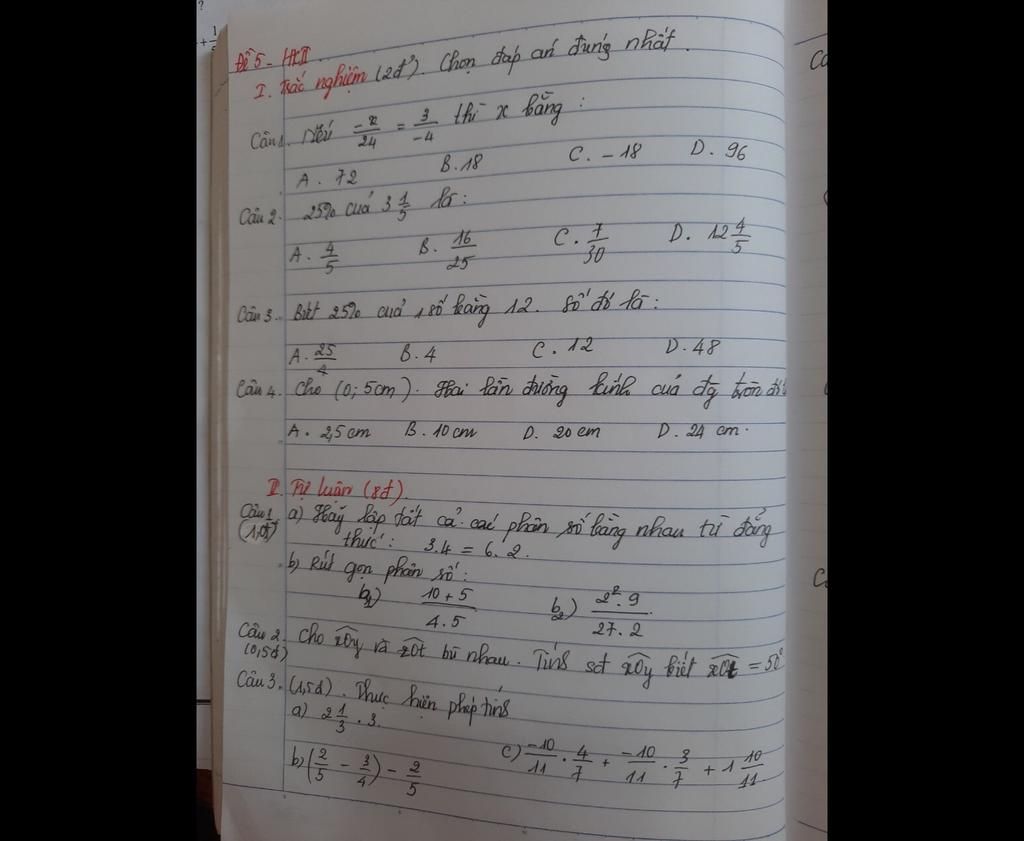 Đề 5 - HKII.
I. Trắc nghiệm (2đ). Chọn đáp án đúng nhất.
Câu 1. Nếu -x/24 = 3/-4 thì x bằng :
A. 72 B. 18 C. -18 D. 96
Câu 2. 25% của 3 1/5 là :
A. 4/5 B. 16/25 C. 7/30 D. 12 4/5
Câu 3. Biết 25% của 1 số bằng 12. Số đó là :
A. 25/4 B. 4 C. 12 D. 48
Câu 4. Cho (O; 5cm). Hai lần đường kính của đg tròn đó
A. 2,5 cm B. 10 cm D. 20 cm D. 24 cm.
II. Tự luận (8đ).
Câu 1 a) Hãy lập tất cả các phân số bằng nhau từ đẳng
(1,0đ) thức : 3.4 = 6.2.
b) Rút gọn phân số :
b1) 10 + 5/4.5 b2) 2².9/27.2
Câu 2. Cho xOy và zOt bù nhau. Tính sđ xOy biết zOt = 50°
(0,5đ)
Câu 3. (1,5đ). Thực hiện phép tính
a) 2 1/3 . 3
b) (2/5 - 3/4) - 2/5 c) -10/11 . 4/7 + -10/11 . 3/7 + 1 10/11